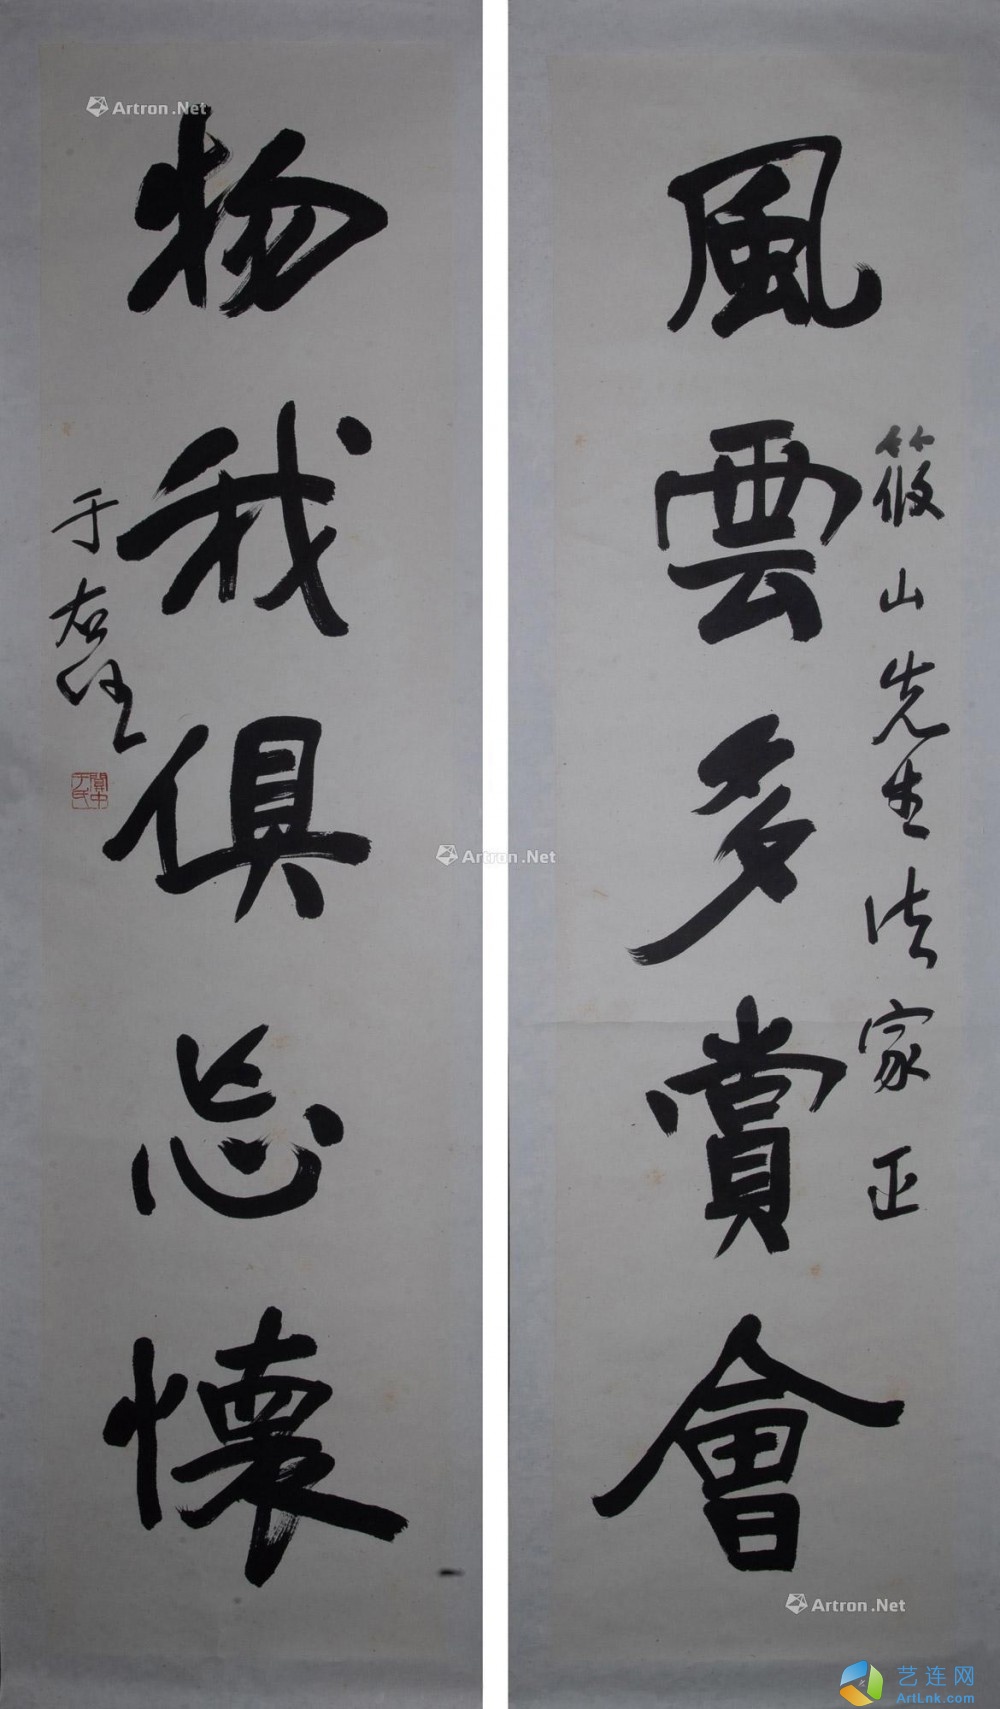 風雲多賞會
筱山先生法家正
物我俱忘懷
于右任
關中于氏
Artron.Net
Artron.Net
Artron.Net
艺连网
ArtLnk.com